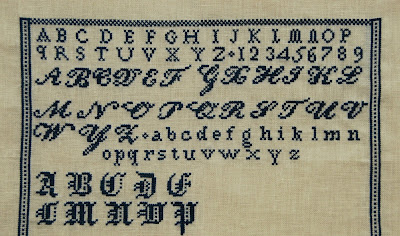 ABCDEFGHIJKLMNOP
QRSTUVXYZ·123456789
ABCDEFGHIKL
MNOPQRSTUV
WYZ·abcdefghiklmn
opqrstuvwxyz
ABCDE
LMNOP